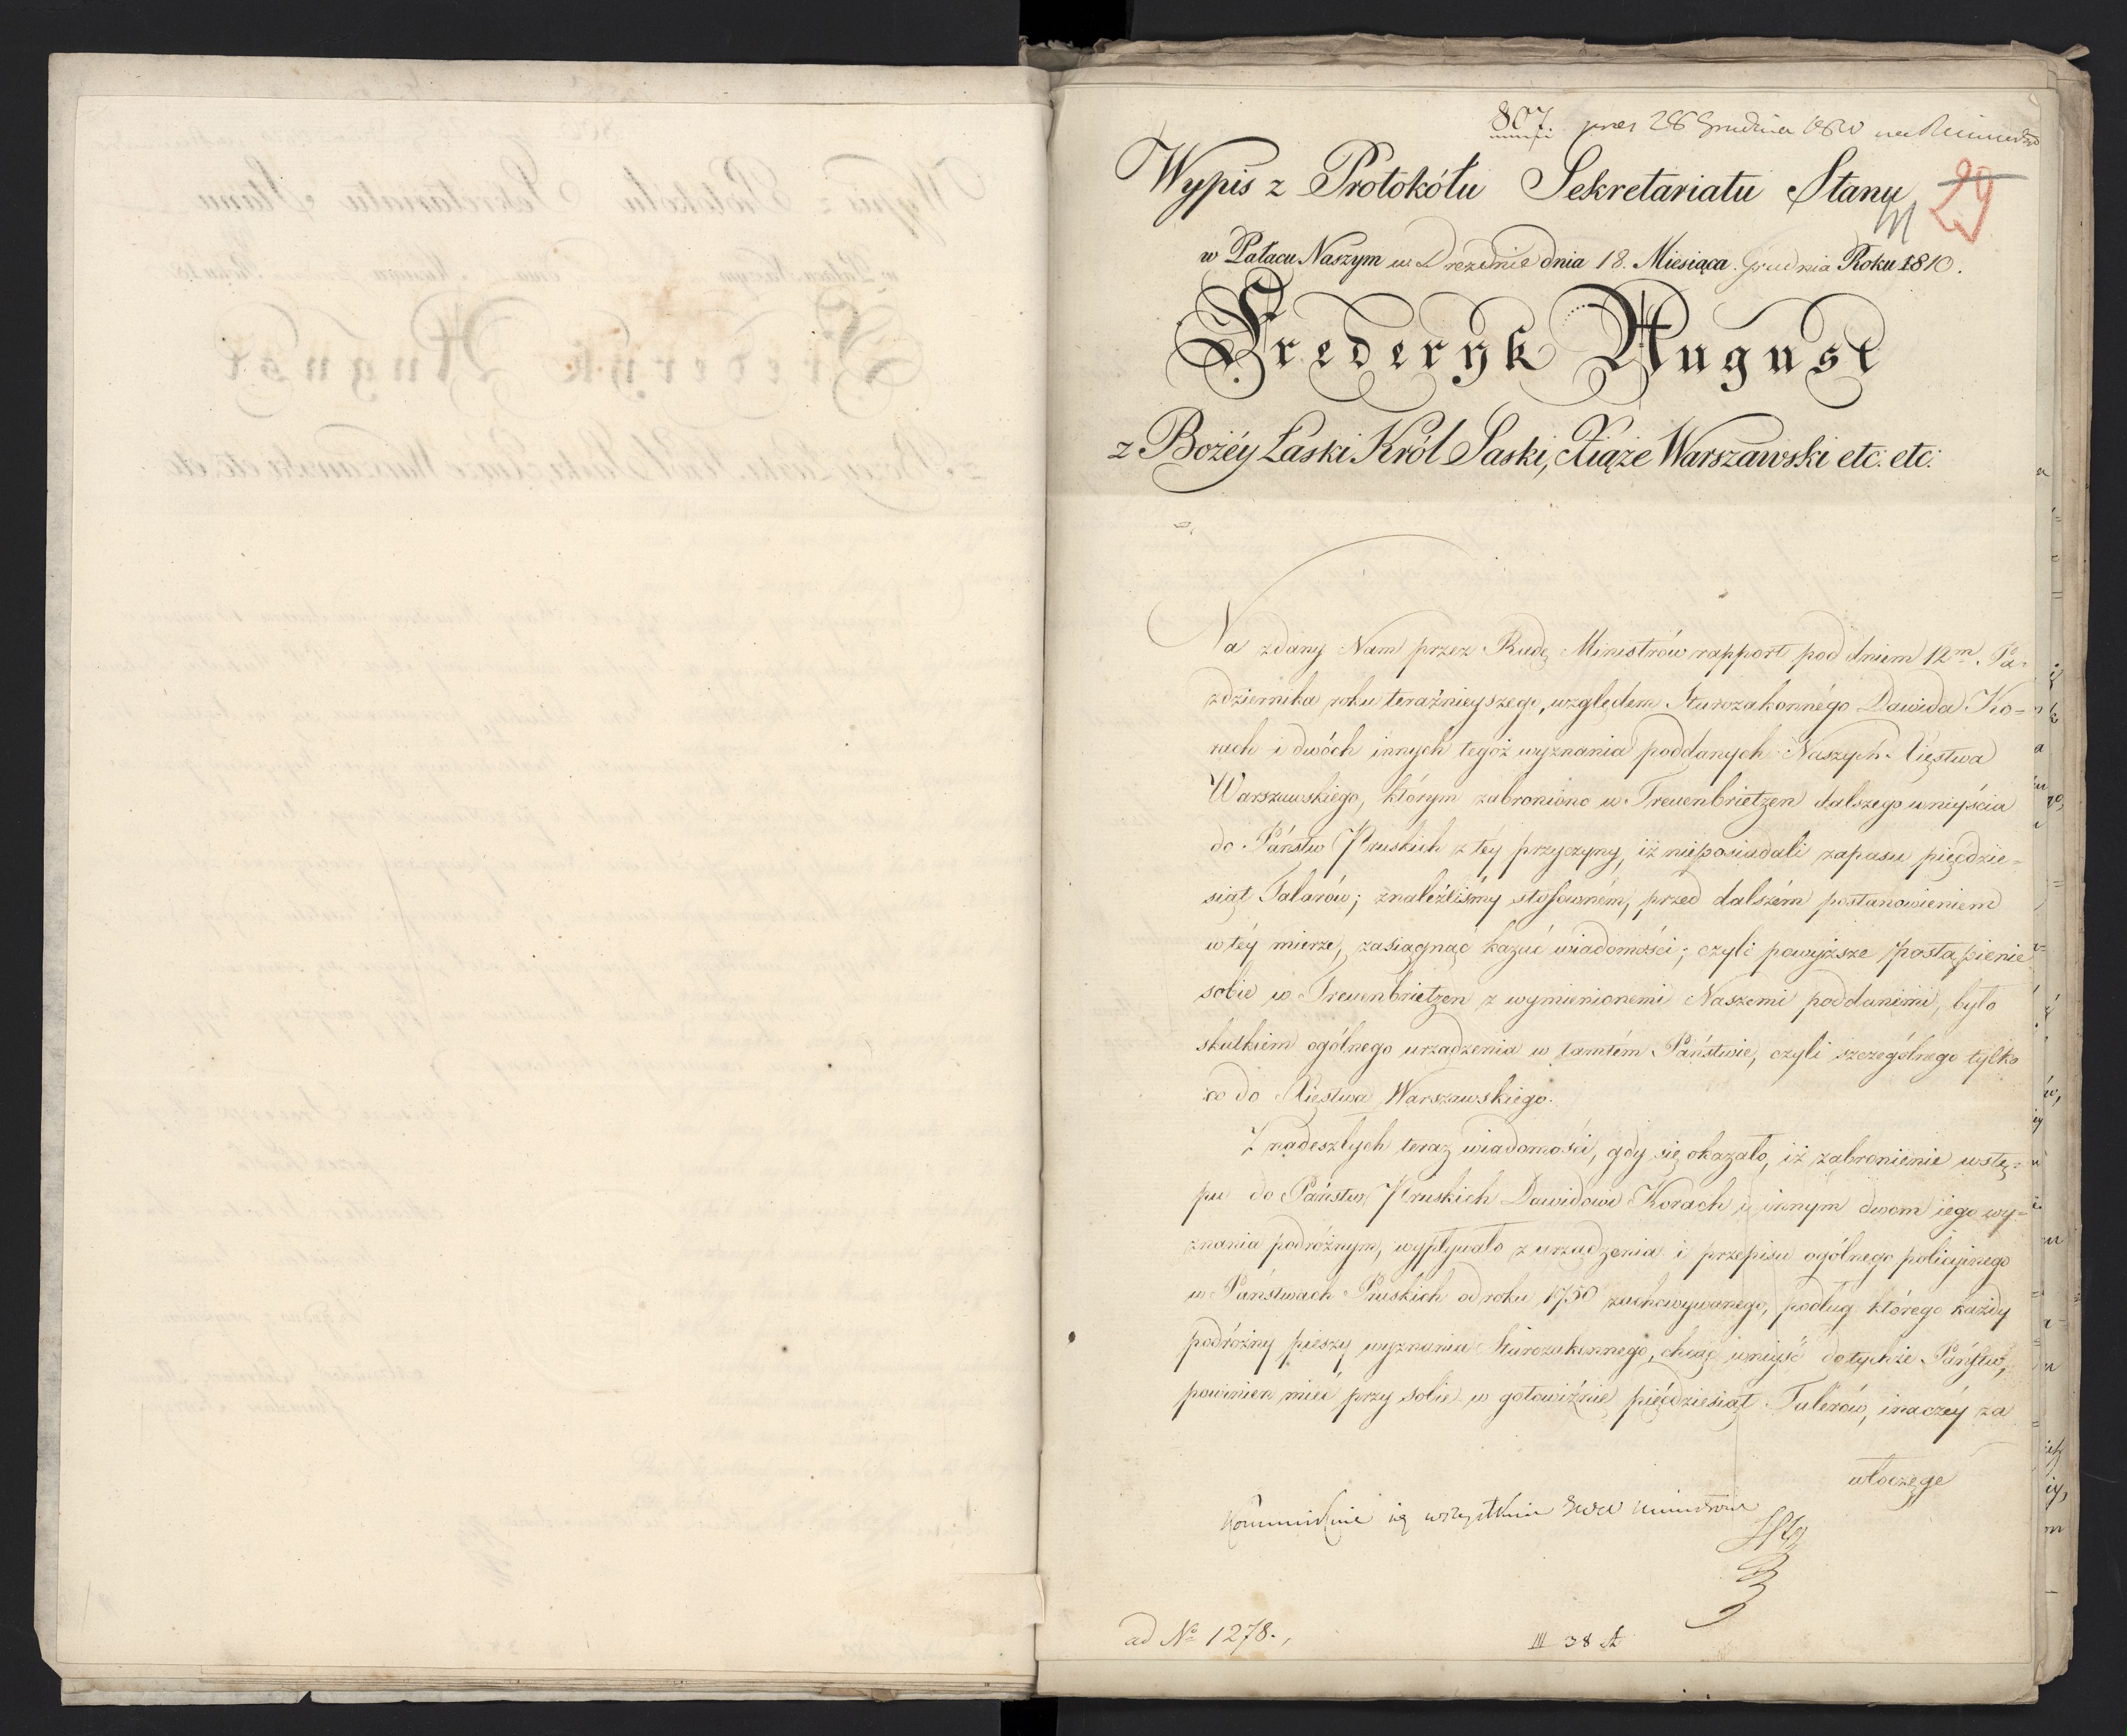 807. 28 Grudnia 1810
Wypis z Protokółu Sekretariatu Stanu
29
w Pałacu Naszym w Dreznie dnia 18. Miesiąca Grudnia Roku 1810.
Frederyk August
z Bożéy Łaski Król Saski, Xiąże Warszawski etc. etc:
Na zdany Nam przez Radę Ministrów rapport pod dniem 12m. Pa-
zdziernika roku teraźnieyszego, względem Starozakonnégo Dawida Ko=
rach i dwóch innych tegoż wyznania poddanych Naszych Xięstwa
Warszawskiego, którym zabroniono w Treuenbrietzen dalszego wniyścia
do Państw Pruskich z téy przyczyny, iż nieposiadali zapasu pięćdzie=
siąt Talarów; znaleźliśmy stosowném, przed dalszém postanowieniem
w téy mierze, zasiągnąć kazać wiadomości; czyli powyższe postąpienie
sobie w Treuenbrietzen z wymienionemi Naszemi poddanemi, było
skutkiem ogólnego urządzenia w tamtém Państwie, czyli szczególnego tylko
co do Xięstwa Warszawskiego.
Z nadeszłych teraz wiadomości, gdy się okazało, iż zabronienie wstę=
pu do Państw Pruskich Dawidowi Korach i innym dwom iego wy=
znania podróżnym, wypływało z urządzenia i przepisu ogólnego policyjnego
w Państwach Pruskich od roku 1750 zachowywanego, podług którego każdy
podróżny pieszy wyznania Starozakonnego, chcąc wniyść do tychże Państw,
powinien mieć przy sobie w gotowiźnie pięćdziesiąt Talerów, inaczéy za
włoczęgę
ad No 1278.
III 38 A